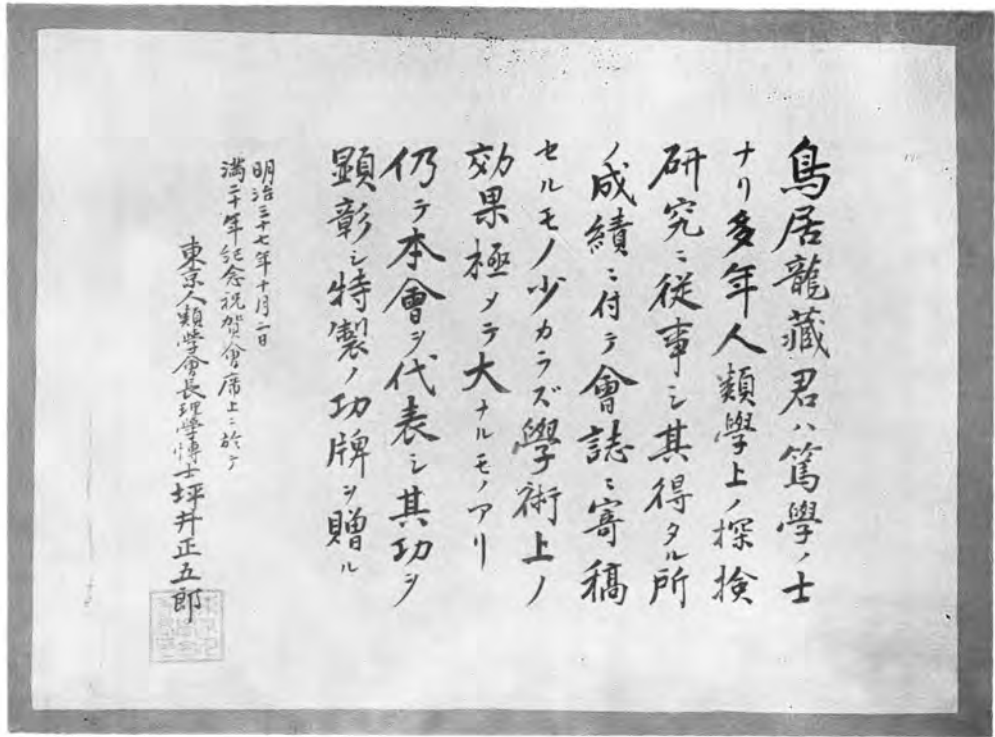 鳥居龍藏君ハ篤學ノ士
ナリ多年人類學上ノ探検
研究ニ從事シ其得タル所
ノ成績ニ付テ會誌ニ寄稿
セルモノ少カラズ學術上ノ
効果極メテ大ナルモノアリ
仍テ本會ヲ代表シ其功ヲ
顕彰シ特製ノ功牌ヲ贈ル
明治三十七年十月二日
満二十年記念祝賀會席上ニ於テ
東京人類學會長理學博士坪井正五郎